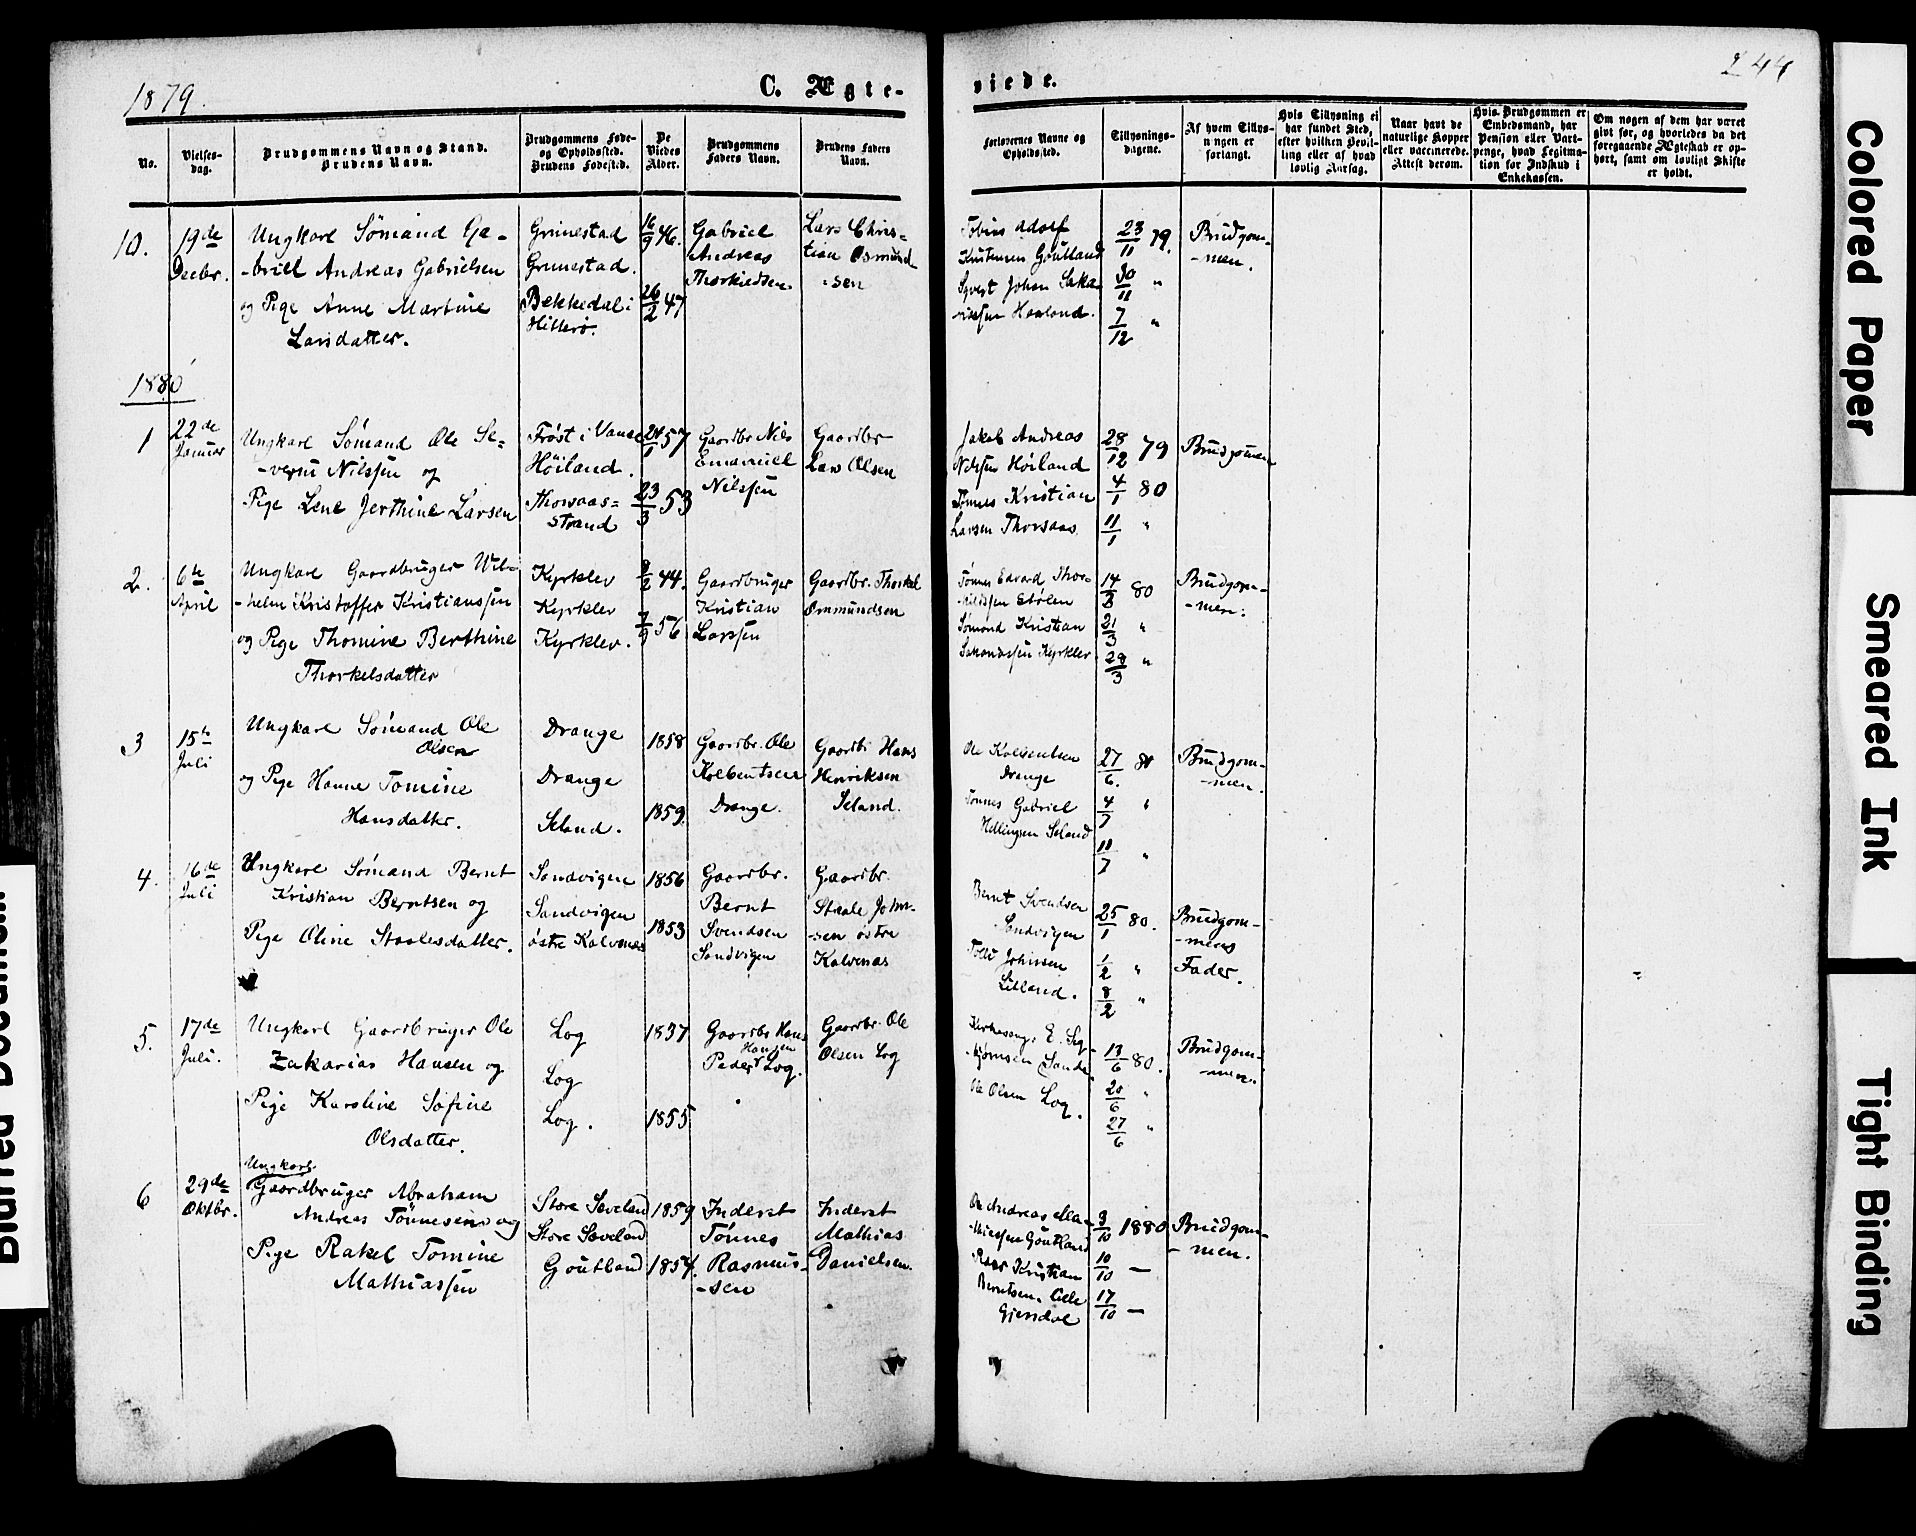 1879.
C. Ægte-
viede.
244
No.
Vielses-
dag.
Brudgommens Navn og Stand.
Brudens Navn.
Brudgommens Føde-
og Opholdssted.
Brudens Fødested.
De
Viedes
Alder.
Brudgommens
Faders Navn.
Brudens Faders
Navn.
Forlovernes Navne og
Opholdssted.
Tillysnings-
dagene.
Af hvem Tillys-
ningen er
forlangt.
Hvis Tillysning ei
har fundet Sted,
efter hvilken Bevil-
ling eller af hvad
lovlig Aarsag.
Naar havt de
naturlige Kopper
eller vaccinerede.
Attest derom.
Hvis Brudgommen er
Embedsmand, har
Pension eller Vart-
penge, hvad Legitima-
tion for Indskud i
Enkekassen.
Om nogen af dem har været
gift før, og hvorledes da det
foregaaende Ægteskab er op-
hørt, samt om lovligt Skifte
er holdt.
10.
19de
Decbr.
Ungkarl Sømand Ga-
-briel Andreas Gabrielsen
og Pige Anne Martine
Larsdatter.
Grunestad
Grunestad.
Bekkedal i
Hitterø.
16/9 46.
26/2 47
Gabriel
Andreas
Thorkildsen
Lars Chris-
tian Osmund
-sen
Tobias Adolf
Goutland
Sivert Johan Saka-
riassen Haaland.
23/11 79.
30/11 "
7/12 "
Brudgom-
-men.
1880
1
22de
Januar
Ungkarl Sømand Ole Se-
-verin Nilssen og
Pige Lene Jerthine Larsen
Frøst i Vanse
Høiland.
Thorsaas-
strand
24/1 57
23/3 53
Gaardbr Nils
Emanuel
Nilssen
Gaardbr
Lars Olsen
Jakob Andreas
Nilssen Høiland
Tønnes Kristian
Larsen Thorsaas.
28/12 79
4/1 80
11/1 "
Brudgommen
2.
6te
April
Ungkarl Gaardbruger Wil-
-helm Kristoffer Kristianssen
og Pige Thomine Berthine
Thorkelsdatter
Kyrklev
Kyrklev
Kyrklev.
9/2 44.
7/9 56
Gaardbruger
Kristian
Larssen
Gaardbr. Thorkel
Ommundsen
Tønnes Edvard Thor-
kildssen Stølen
Sømand Kristian
Salmondssen Kyrklev
14/3 80
21/3 "
28/3 "
Brudgom-
-men.
3
15te
Juli
Ungkarl Sømand Ole
Olsen
og Pige Hanne Tomine
Hansdatter.
Drange
Drange
Seland.
1858
1859.
Gaardbr. Ole
Kolbentsen
Drange.
Gaardbr Hans
Henriksen
Seland.
Ole Kolbentsen
Drange
Tønnes Gabriel
Hellingsen Seland
27/6. 80
4/7 "
11/7 "
Brudgom-
-men.
4.
16de
Juli
Ungkarl Sømand Bernt
Kristian Berntsen og
Pige Oline Staalesdatter.
Sandvigen
Sandvigen
østre Kalvenes
1856
1853
Gaardbr.
Bernt
Svendsen
Sandvigen
Gaardbr.
Staale John-
-sen østre
Kalvenas
Bernt Svendsen
Sandvigen
Johnssen
Lilland.
25/1 80.
1/2 "
8/2 "
Brudgom-
-mens
Fader.
5.
17de
Juli.
Ungkarl Gaardbruger Ole
Zakarias Hansen og
Pige Karoline Sofine
Olsdatter.
Log
Log
Log.
1837
1855
Gaardbr Hans
Hansen
Peder Log.
Gaardbr. Ole
Olsen Log
Kirkesang. E. Sig-
-bjørnsen Sande
Ole Olsen Log.
13/6 80.
20/6 "
27/6 "
Brudgom-
-men.
6
29de
Oktbr.
Ungkarl
Gaardbruger Abraham
Andreas Tønnesen og
Pige Rakel Tomine
Mathiassen
Store Seveland
Store Seveland
Goutland
1859
1854.
Inderst
Tønnes
Rasmus-
-sen
Inderst
Mathias
Danielsen.
Ole Andreas Ma-
thiassen Goutland
Kristian
Berntsen. Lille
Gjersdal
3/10 1880
10/10 —
17/10 —
Brudgom-
- men.
Colored Paper
Smeared Ink
Tight Binding
Blurred Document